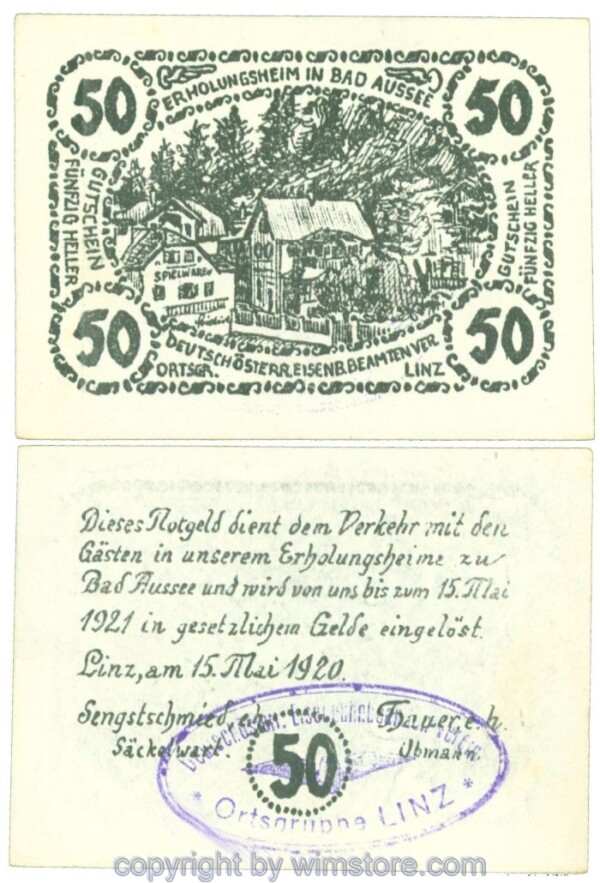 50
ERHOLUNGSHEIM IN BAD AUSSEE
50
GUTSCHEIN
FÜNFZIG HELLER
SPIELWAREN
GUTSCHEIN
FÜNFZIG HELLER
50
DEUTSCHÖSTERR. EISENB. BEAMTENVER
50
ORTSGR.
LINZ
Dieses Notgeld dient dem Verkehr mit den
Gästen in unserem Erholungsheime zu
Bad Aussee und wird von uns bis zum 15. Mai
1921 in gesetzlichem Gelde eingelöst.
Linz, am 15. Mai 1920.
Sengstschmied, e.h.
Thauer, e.h.
Säckelwart.
Obmann.
50
* Ortsgruppe LINZ *
copyright by wimstore.com